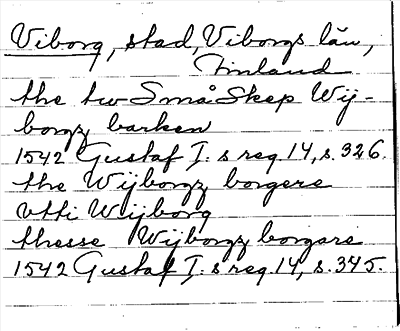 Viborg, stad, Viborgs län,
Finland
the tw Små Skep Wij-
borgz barken
1542 Gustaf I. s reg. 14, s. 326.
the Wijborgz borgere
vtti Wijborg
thesse Wijborgz borgare
1542 Gustaf I. s reg. 14, s. 345.